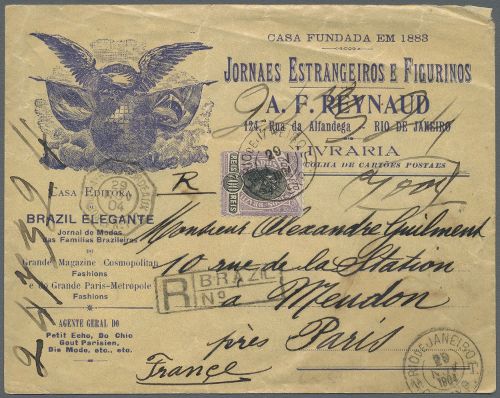 CASA FUNDADA EM 1883
JORNAES ESTRANGEIROS E FIGURINOS
A. F. REYNAUD
124, Rua da Alfandega - RIO DE JANEIRO
LIVRARIA
COLHA DE CARTÕES POSTAES
R
CASA EDITORA
BRAZIL ELEGANTE
Jornal de Modas
das Familias Brazileiras
DO
Grande Magazine Cosmopolitan
Fashions
e do Grande Paris-Metropole
Fashions
AGENTE GERAL DO
Petit Echo, Do Chic
Gout Parisien,
Die Mode, etc., etc.
REIS 700 REIS
29
04
29
Monsieur Alexandre Guilmont
10 rue de la Station
à Meudon
près Paris
France
R BRAZIL
No
RIO DE JANEIRO
29
1904